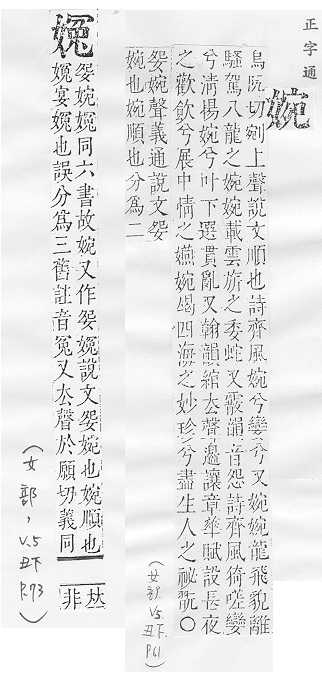 正字通
婉
烏阮切剜上聲說文順也詩齊風婉兮孌兮又婉婉龍飛貌離
騷駕八龍之婉婉載雲旂之委蛇又霰韻音怨詩齊風猗嗟孌
兮清揚婉兮叶下選貫亂又翰韻綰去聲邊讓章華賦設長夜
之歡飲兮展中情之嬿婉竭四海之妙珍兮盡生人之祕翫○
妴婉聲義通說文妴
婉也婉順也分爲二
(女部,V.5丑下P.61)
妴婉同六書故婉又作妴說文妴婉也婉順也
宴也誤分爲三舊註音冤又去聲於願切義同
非
(女部,V.5丑下P.73)